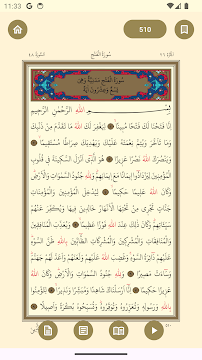 11:33
510
سُورَةُ الْفَتْحِ
سُورَةُ الْفَتْحِ مَدَنِيَّةٌ وَهِيَ
تِسْعٌ وَعِشْرُونَ آيَةً
بِسْمِ اللهِ الرَّحْمٰنِ الرَّحِيمِ
إِنَّا فَتَحْنَا لَكَ فَتْحًا مُبِينًا لِيَغْفِرَ لَكَ اللهُ مَا تَقَدَّمَ مِنْ ذَنْبِكَ
وَمَا تَأَخَّرَ وَيُتِمَّ نِعْمَتَهُ عَلَيْكَ وَيَهْدِيَكَ صِرَاطًا مُسْتَقِيمًا
وَيَنْصُرَكَ اللهُ نَصْرًا عَزِيزًا هُوَ الَّذِي أَنْزَلَ السَّكِينَةَ فِي قُلُوبِ
الْمُؤْمِنِينَ لِيَزْدَادُوا إِيمَانًا مَعَ إِيمَانِهِمْ وَلِلهِ جُنُودُ السَّمٰوَاتِ وَالْأَرْضِ
وَكَانَ اللهُ عَلِيمًا حَكِيمًا لِيُدْخِلَ الْمُؤْمِنِينَ وَالْمُؤْمِنَاتِ
جَنَّاتٍ تَجْرِي مِنْ تَحْتِهَا الْأَنْهَارُ خَالِدِينَ فِيهَا وَيُكَفِّرَ عَنْهُمْ
سَيِّئَاتِهِمْ وَكَانَ ذٰلِكَ عِنْدَ اللهِ فَوْزًا عَظِيمًا وَيُعَذِّبَ الْمُنَافِقِينَ
وَالْمُنَافِقَاتِ وَالْمُشْرِكِينَ وَالْمُشْرِكَاتِ الظَّانِّينَ بِاللهِ ظَنَّ السَّوْءِ
عَلَيْهِمْ دَائِرَةُ السَّوْءِ وَغَضِبَ اللهُ عَلَيْهِمْ وَلَعَنَهُمْ وَأَعَدَّ لَهُمْ جَهَنَّمَ
وَسَاءَتْ مَصِيرًا وَلِلهِ جُنُودُ السَّمٰوَاتِ وَالْأَرْضِ وَكَانَ اللهُ
عَزِيزًا حَكِيمًا إِنَّا أَرْسَلْنَاكَ شَاهِدًا وَمُبَشِّرًا وَنَذِيرًا لِتُؤْمِنُوا
بِاللهِ وَرَسُولِهِ وَتُعَزِّرُوهُ وَتُوَقِّرُوهُ وَتُسَبِّحُوهُ بُكْرَةً وَأَصِيلًا